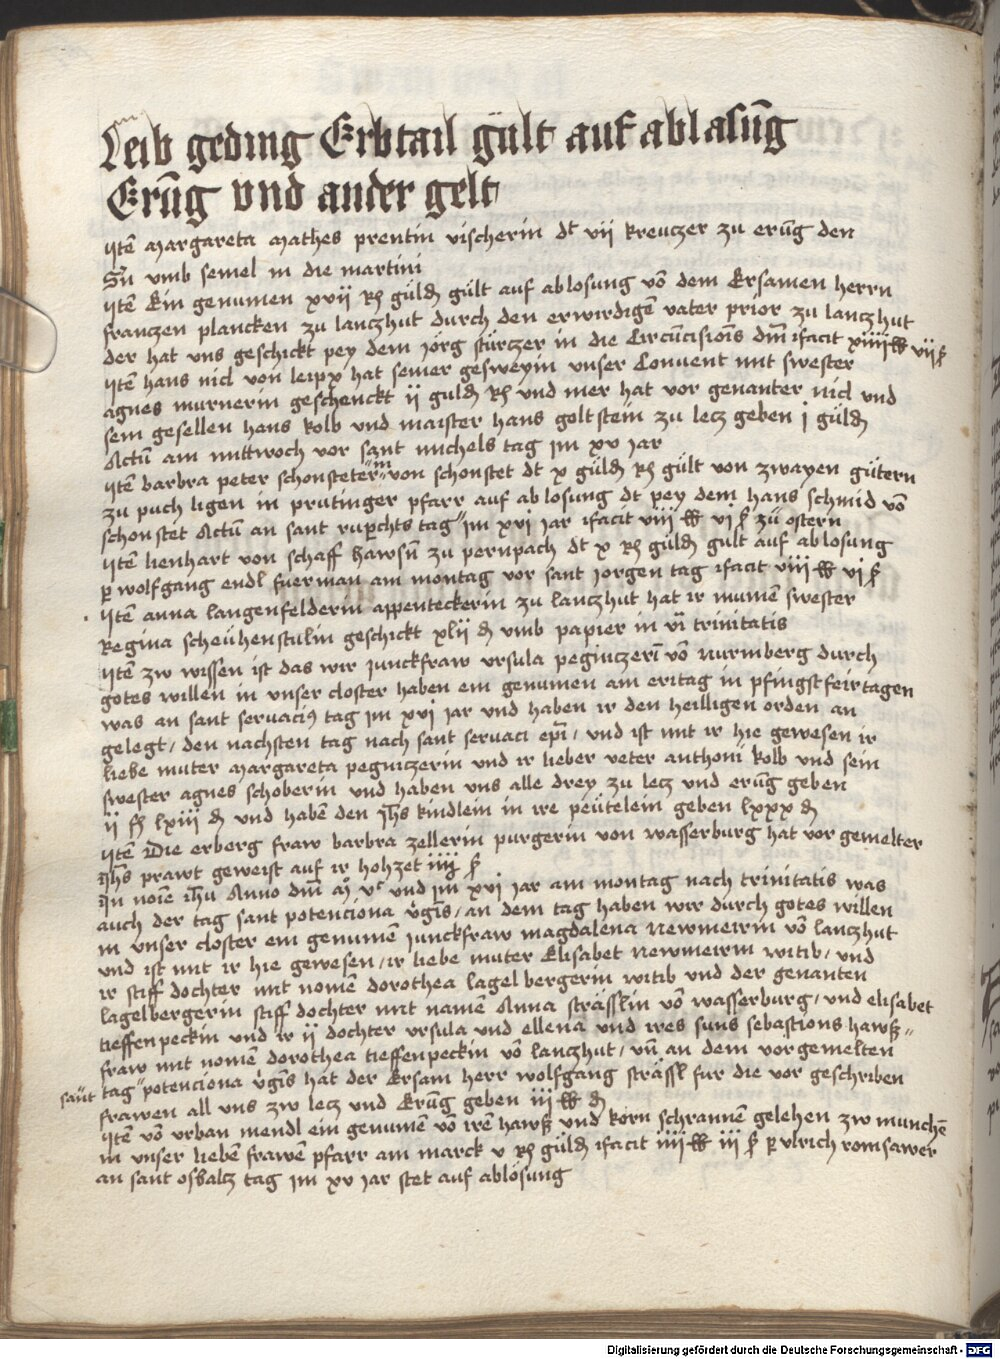 Leib geding Erbtail gült auf ablasūg
Erūg vnd ander gelt
Itē Margareta Mathes prentin vischerin dt vii kreuczer zu erūg den
Sū vmb semel in die martini
Itē Ein genumen xvii rh güld gült auf ablosung vō dem Ersamen herrn
franczen plancken zu lanczhut durch den erwirdigē vater prior zu lanczhut
der hat vns geschickt pey dem jorg stürczer in die Circūcisiōis dm̄ ifacit xiiii ℔ vii ß
Itē hans nicl von leipx hat seiner gesweyin vnser Conuent mit swester
agnes murnerin geschenckt ii guld rh vnd mer hat vor genanter nicl vnd
sein gesellen hans kolb vnd maister hans goltstein zu lecz geben j güld
Actū am mittwoch vor sant michels tag jm xv jar
Itē barbra peter schonsteterin von schonstet dt x güld rh gült von zwayen gütern
zu puch ligen in prutinger pfarr auf ablosung dt pey dem hans schmid vō
schonstet Actū an sant ruprchts tag jm xvi jar ifacit viii ℔ vi ß zu ostern
Itē lienhart von schaff hawsn̄ zu pernpach dt x rh güld gult auf ablosung
p wolfgang endl fuerman am montag vor sant jorgen tag ifacit viii ℔ vi ß
Itē anna langenfelderin appenteckerin zu lanczhut hat ir mumen swester
Regina scheühenstulin geschickt xlii d vmb papier in vī trinitatis
Itē zw wissen ist das wir junckfraw vrsula pegniczerī vō nurmberg durch
gotes willen in vnser closter haben ein genumen am eritag in pfingstfeirtagen
was an sant seruacis tag jm xvi jar vnd haben ir den heilligen orden an
gelegt / den nachsten tag nach sant seruaci epī / vnd ist mit ir hie gewesen ir
liebe muter Margareta pegniczerin vnd ir lieber veter anthoni kolb vnd sein
swester agnes schoberin vnd haben vns alle drey zu lecz vnd erūg geben
ii fl lxiii d vnd habē den jh̄s kindlein in ire peütelein geben lxxx d
Itē Die erberg fraw barbra zellerin purgerin von wasserburg hat vor gemelter
jh̄s prawt geweist auf ir hohzet iiii ß
In noīe ih̄u Anno dm̄ m vc vnd jm xvi jar am montag nach trinitatis was
auch der tag sant potenciona v̄gīs / an dem tag haben wir durch gotes willen
in vnser closter ein genumē junckfraw magdalena newmeirin vō lanczhut
vnd ist mit ir hie gewesen / ir liebe muter Elisabet newmeirin witib / vnd
ir stiff dochter mit nomē dorothea lagelbergerin witib vnd der genanten
lagelbergerin stiff dochter mit namē Anna strässlin vō wasserburg / vnd elisabet
tieffenpeckin vnd ir ii dochter vrsula vnd ellena vnd ires suns sebastions hawß
fraw mit nomē dorothea tieffenpeckin vō lanczhut / vn̄ an dem vorgemelten
sant tag potenciona v̄gīs hat der Ersam herr wolfgang strässl fur die vor geschriben
frawen all vns zw lecz vnd Erūg geben iii ℔ d
Itē vō vrban mendl ein genumē vō irē hawß vnd korn schrannē gelehen zw munchē
in vnser liebē frawē pfarr am marck v rh güld ifacit iiii ℔ iii ß p vlrich romsawer
an sant oswaltz tag jm xv jar stet auf ablosung
Digitalisierung gefördert durch die Deutsche Forschungsgemeinschaft - DFG